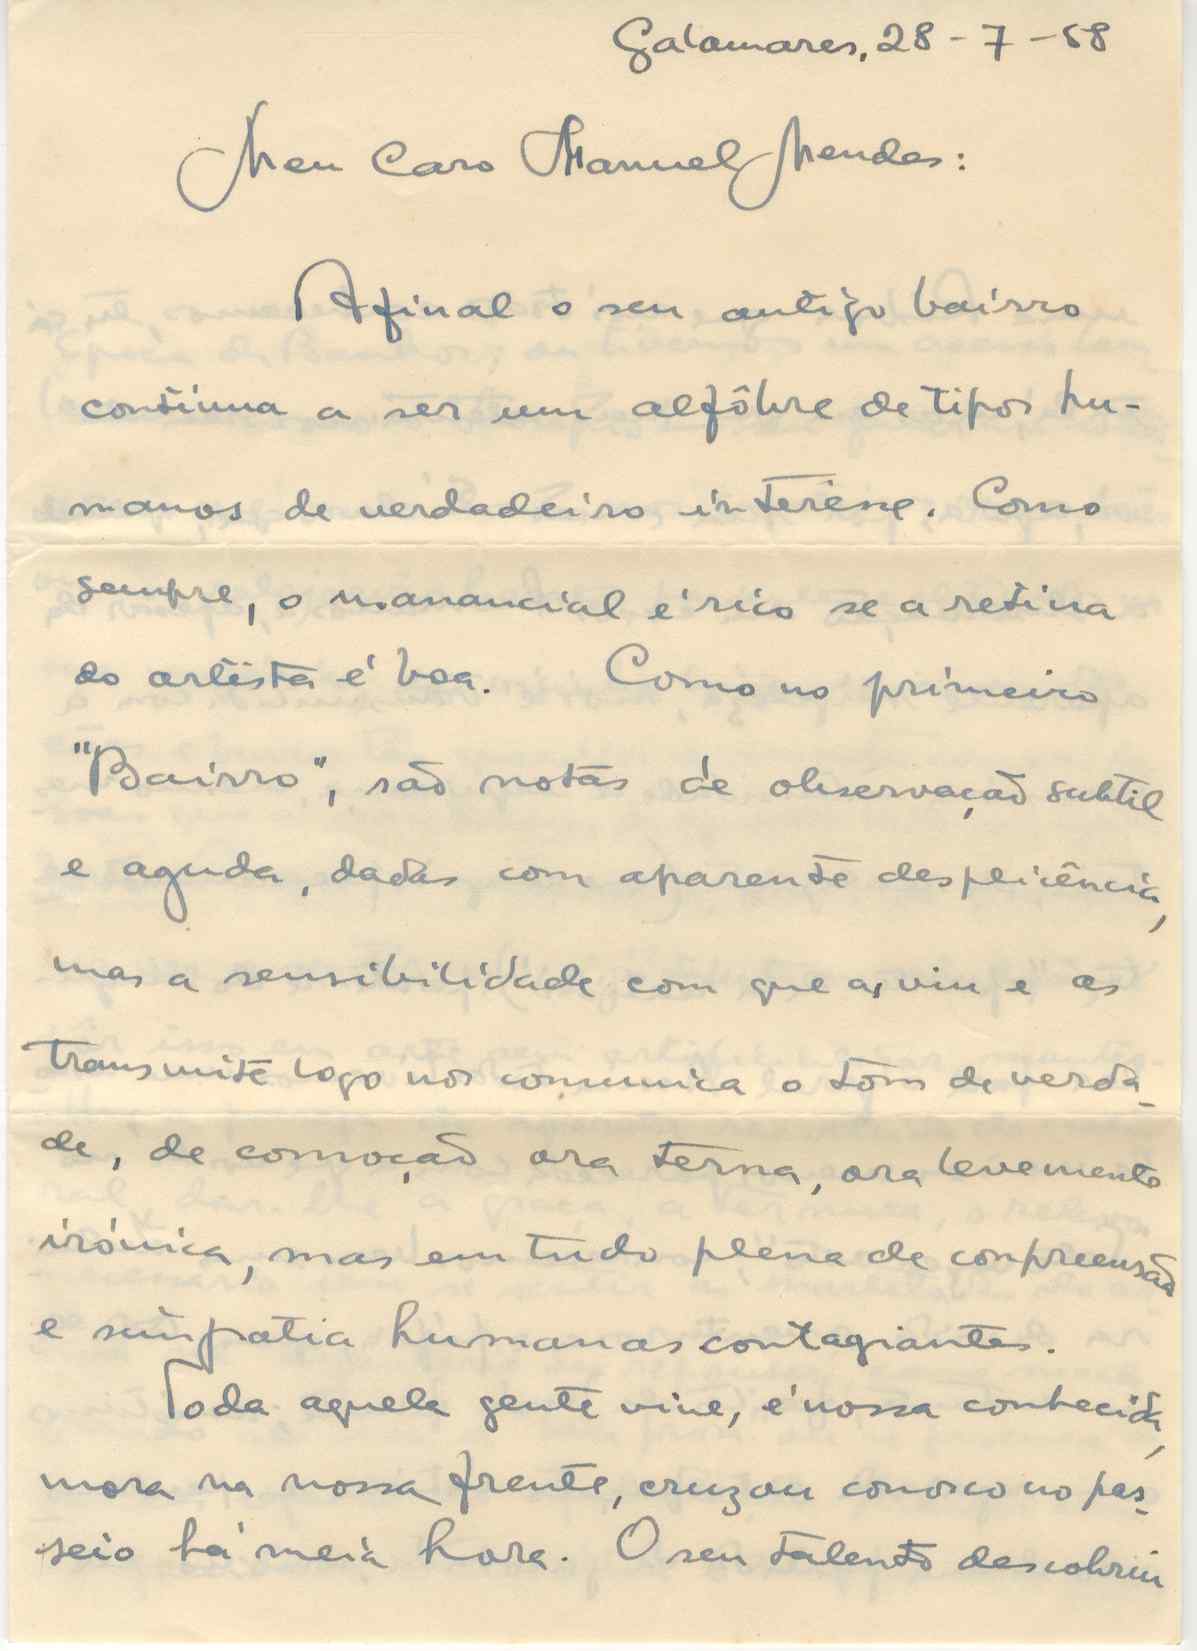 Galamares, 28-7-58
Meu Caro Manuel Mendes:
Afinal o seu antigo bairro
continua a ser um alfôbre de tipos hu-
manos de verdadeiro interêsse. Como
sempre, o manancial é rico se a retina
do artista é boa. Como no primeiro
"Bairro", são notas de observação subtil
e aguda, dadas com aparente desplicência,
mas a sensibilidade com que as viu e as
transmite logo nos comunica o tom de verda-
de, de comoção ora terna, ora levemente
irónica, mas em tudo plena de compreensão
e simpatia humanas contagiantes.
Toda aquela gente vive, é nossa conhecida,
mora na nossa frente, cruzou conosco no pas-
seio há meia hora. O seu talento descobriu